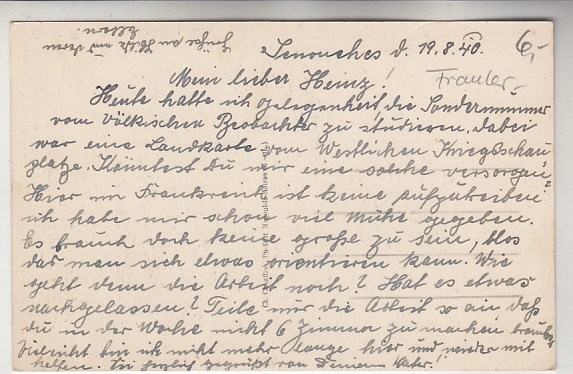 Senonches d. 19.8.40.
6,-
Mein lieber Heinz!
Heute hatte ich gelegenheit, die Sondernummer
vom Völkischen Beobachter zu studieren, dabei
war eine Landkarte vom Westlichen Kriegsschau-
platze. Könntest Du mir eine solche versorgen?
Hier im Frankreich ist keine aufzutreiben
ich habe mir schon viel Mühe gegeben.
Es brauch doch keine große zu sein, blos
das man sich etwas orientieren kann. Wie
geht denn die Arbeit noch? Hat es etwas
nachgelassen? Teile mir die Arbeit so ein, daß
du in der Woche nicht 6 Zimmer zu machen brauchst
Vieleicht bin ich nicht mehr lange hier und werde mit
helfen. Sei herzlich gegrüßt von Deinem Vater.
Grüße an Hilde und deren
Eltern.